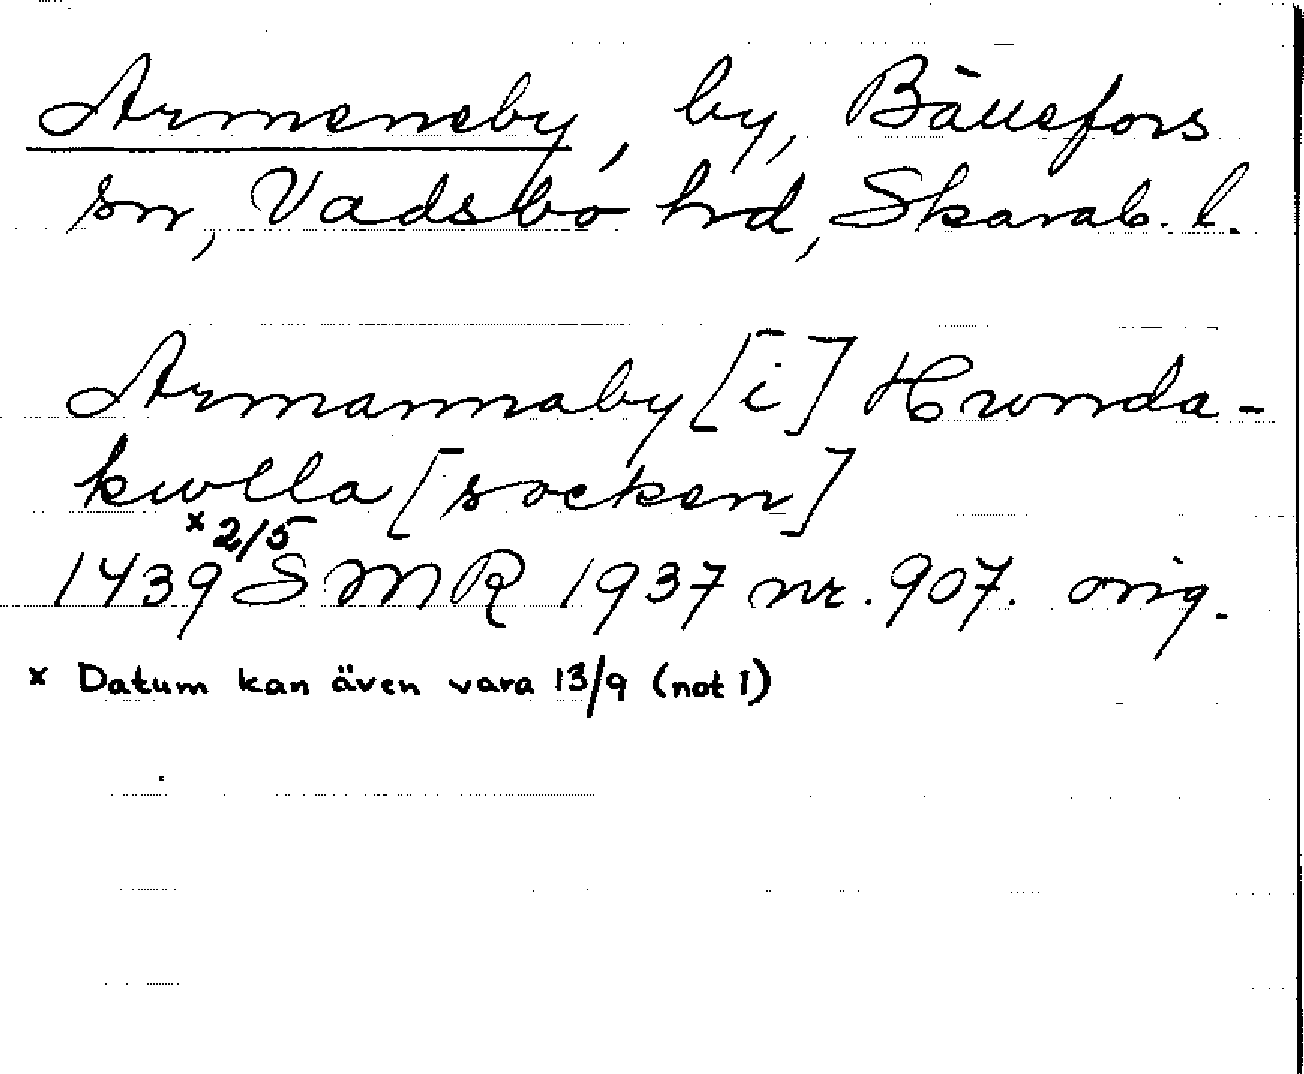 Armeneby, by, Bällefors
sn, Vadsbo hrd, Skarab. l.
Armannaby [i] Hwnda-
kwlla [socken]
x 2/5
1439 SMR 1937 nr. 907. orig.
x Datum kan även vara 13/9 (not 1)